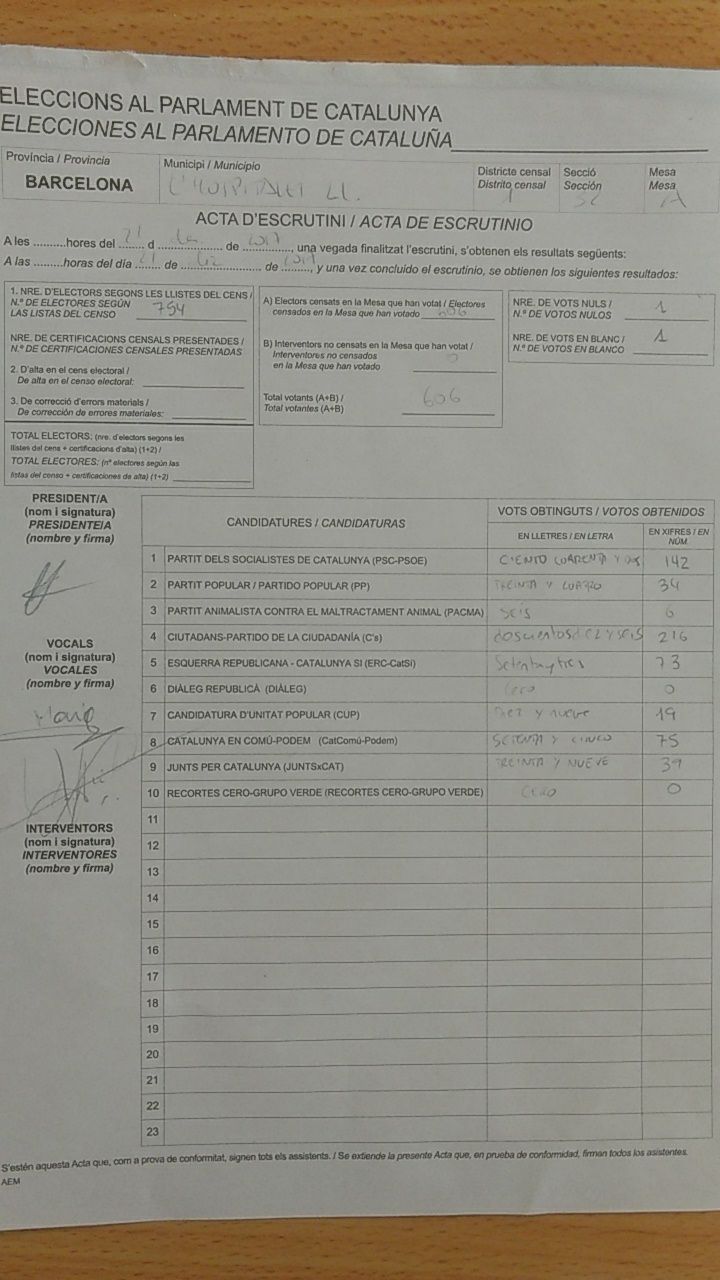 ELECCIONS AL PARLAMENT DE CATALUNYA
ELECCIONES AL PARLAMENTO DE CATALUÑA
Província / Provincia
BARCELONA
Municipi / Municipio
L'HOSPITALET LL.
Districte censal
Distrito censal
1
Secció
Sección
Mesa
Mesa
A
ACTA D'ESCRUTINI / ACTA DE ESCRUTINIO
A les .........hores del 21 d ................. de 2017, una vegada finalitzat l'escrutini, s'obtenen els resultats següents:
A las .........horas del día 21 de ................. de 2017, y una vez concluido el escrutinio, se obtienen los siguientes resultados:
1. NRE. D'ELECTORS SEGONS LES LLISTES DEL CENS /
N.º DE ELECTORES SEGÚN
LAS LISTAS DEL CENSO 754
NRE. DE CERTIFICACIONS CENSALS PRESENTADES /
N.º DE CERTIFICACIONES CENSALES PRESENTADAS
2. D'alta en el cens electoral /
De alta en el censo electoral:
3. De correcció d'errors materials /
De corrección de errores materiales:
TOTAL ELECTORS: (nre. d'electors segons les
llistes del cens + certificacions d'alta) (1+2) /
TOTAL ELECTORES: (nº electores según las
listas del censo + certificaciones de alta) (1+2)
A) Electors censats en la Mesa que han votat / Electores
censados en la Mesa que han votado 606
B) Interventors no censats en la Mesa que han votat /
Interventores no censados
en la Mesa que han votado 0
Total votants (A+B) /
Total votantes (A+B) 606
NRE. DE VOTS NULS /
N.º DE VOTOS NULOS 1
NRE. DE VOTS EN BLANC /
N.º DE VOTOS EN BLANCO 1
PRESIDENT/A
(nom i signatura)
PRESIDENTE/A
(nombre y firma)
VOCALS
(nom i signatura)
VOCALES
(nombre y firma)
INTERVENTORS
(nom i signatura)
INTERVENTORES
(nombre y firma)
CANDIDATURES / CANDIDATURAS
VOTS OBTINGUTS / VOTOS OBTENIDOS
EN LLETRES / EN LETRA
EN XIFRES / EN NÚM.
1 PARTIT DELS SOCIALISTES DE CATALUNYA (PSC-PSOE) CIENTO CUARENTA Y DOS 142
2 PARTIT POPULAR / PARTIDO POPULAR (PP) TREINTA Y CUATRO 34
3 PARTIT ANIMALISTA CONTRA EL MALTRACTAMENT ANIMAL (PACMA) SEIS 6
4 CIUTADANS-PARTIDO DE LA CIUDADANÍA (C's) doscientos diez y seis 216
5 ESQUERRA REPUBLICANA - CATALUNYA SI (ERC-CatSI) Setenta y tres 73
6 DIÀLEG REPUBLICÀ (DIÀLEG) Cero 0
7 CANDIDATURA D'UNITAT POPULAR (CUP) Diez y nueve 19
8 CATALUNYA EN COMÚ-PODEM (CatComú-Podem) SETENTA Y CINCO 75
9 JUNTS PER CATALUNYA (JUNTSxCAT) TREINTA Y NUEVE 39
10 RECORTES CERO-GRUPO VERDE (RECORTES CERO-GRUPO VERDE) CERO 0
11
12
13
14
15
16
17
18
19
20
21
22
23
S'estén aquesta Acta que, com a prova de conformitat, signen tots els assistents. / Se extiende la presente Acta que, en prueba de conformidad, firman todos los asistentes.
AEM